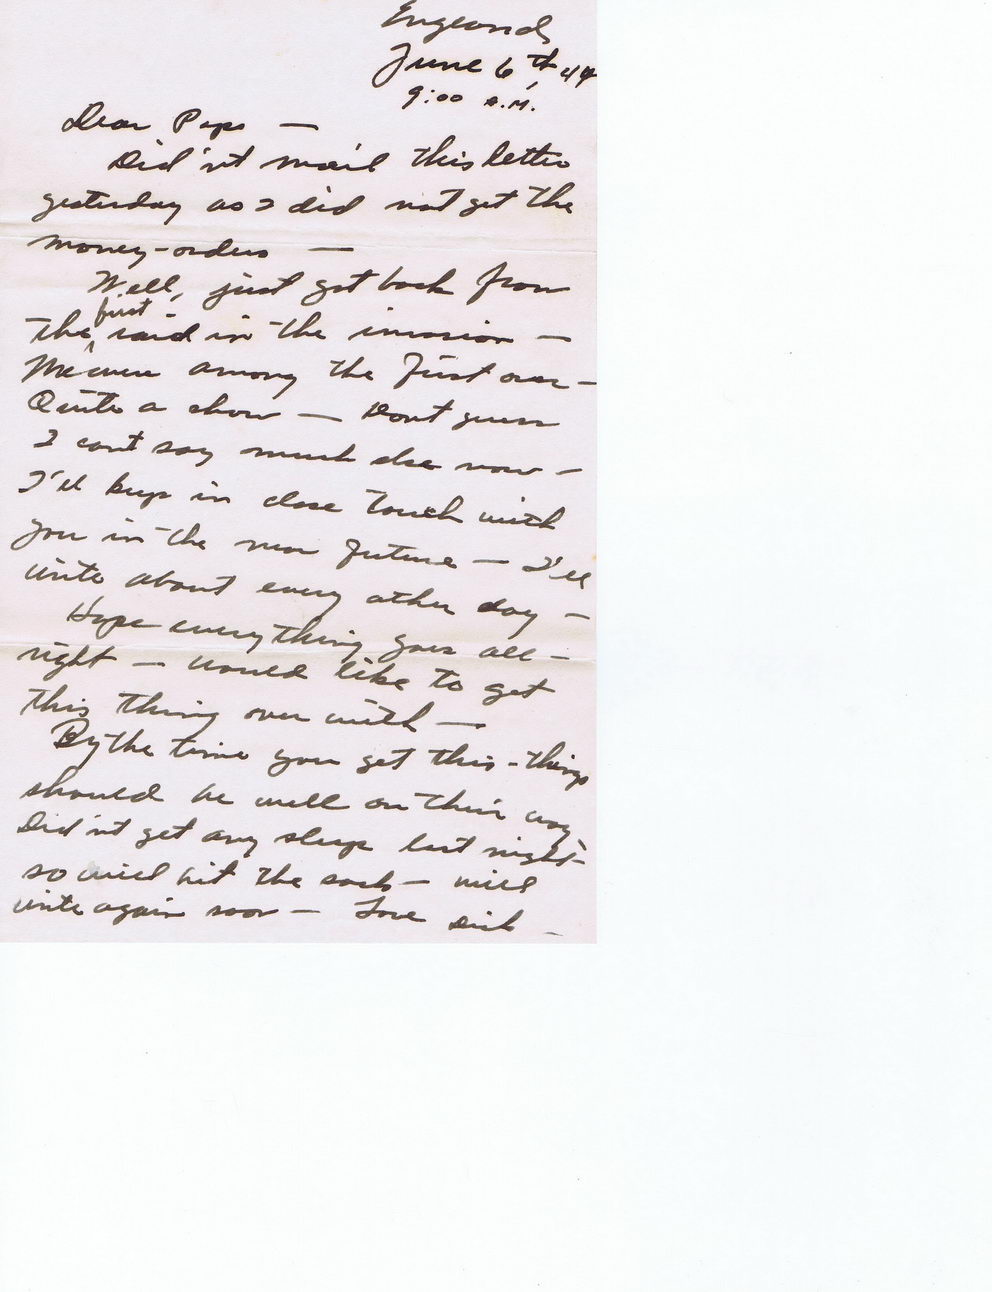 England
June 6th, 44
9:00 A.M.
Dear Pops —
Did'nt mail this letter
yesterday as I did not get the
money-orders —
Well, just got back from
first
the raid in the invasion —
We were among the first over —
Quite a show — Dont guess
I cant say much else now —
I'll keep in close touch with
you in the near future — I'll
write about every other day —
Hope everything goes all-
right — would like to get
this thing over with —
By the time you get this - things
should be well on their way -
Did'nt get any sleep last night -
so will hit the sack — will
write again soon — Love Dick —